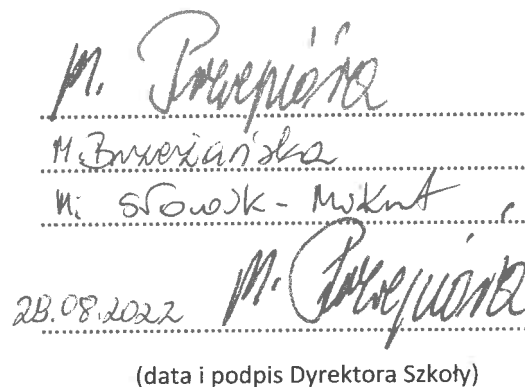 M. Przepióra
M. Brzezińska
M. Słowik -
28.08.2022 M. Przepióra
(data i podpis Dyrektora Szkoły)